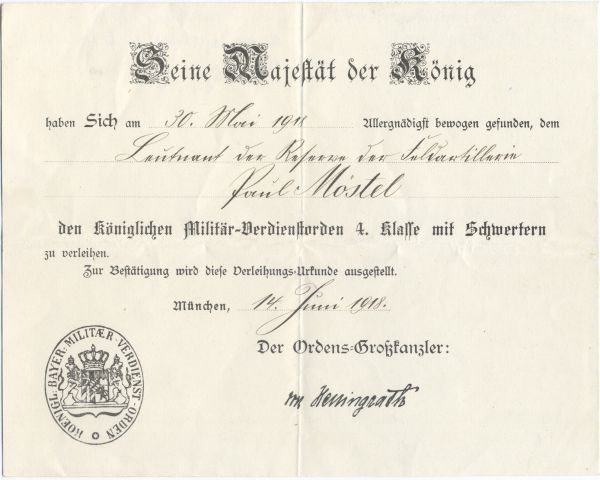 Seine Majestät der König
haben Sich am 30. Mai 1918 Allergnädigst bewogen gefunden, dem
Leutnant der Reserve der Feldartillerie
Paul Möstel
den Königlichen Militär-Verdienstorden 4. Klasse mit Schwertern
zu verleihen.
Zur Bestätigung wird diese Verleihungs-Urkunde ausgestellt.
München, 14. Juni 1918.
Der Ordens-Großkanzler:
KOENIGL. BAYER. MILITÆR-VERDIENST-ORDEN